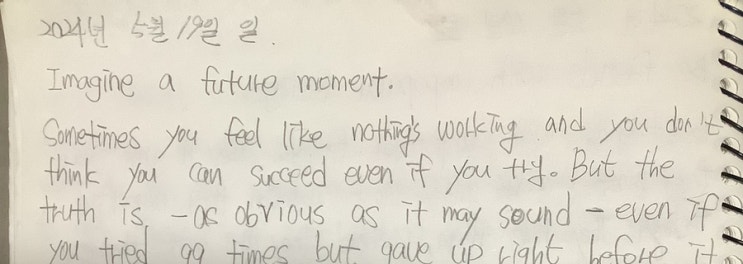 2024년 5월 19일 일.
Imagine a future moment.
Sometimes you feel like nothing's working and you don't
think you can succeed even if you try. But the
truth is, - as obvious as it may sound - even if
you tried 99 times but gave up right before it